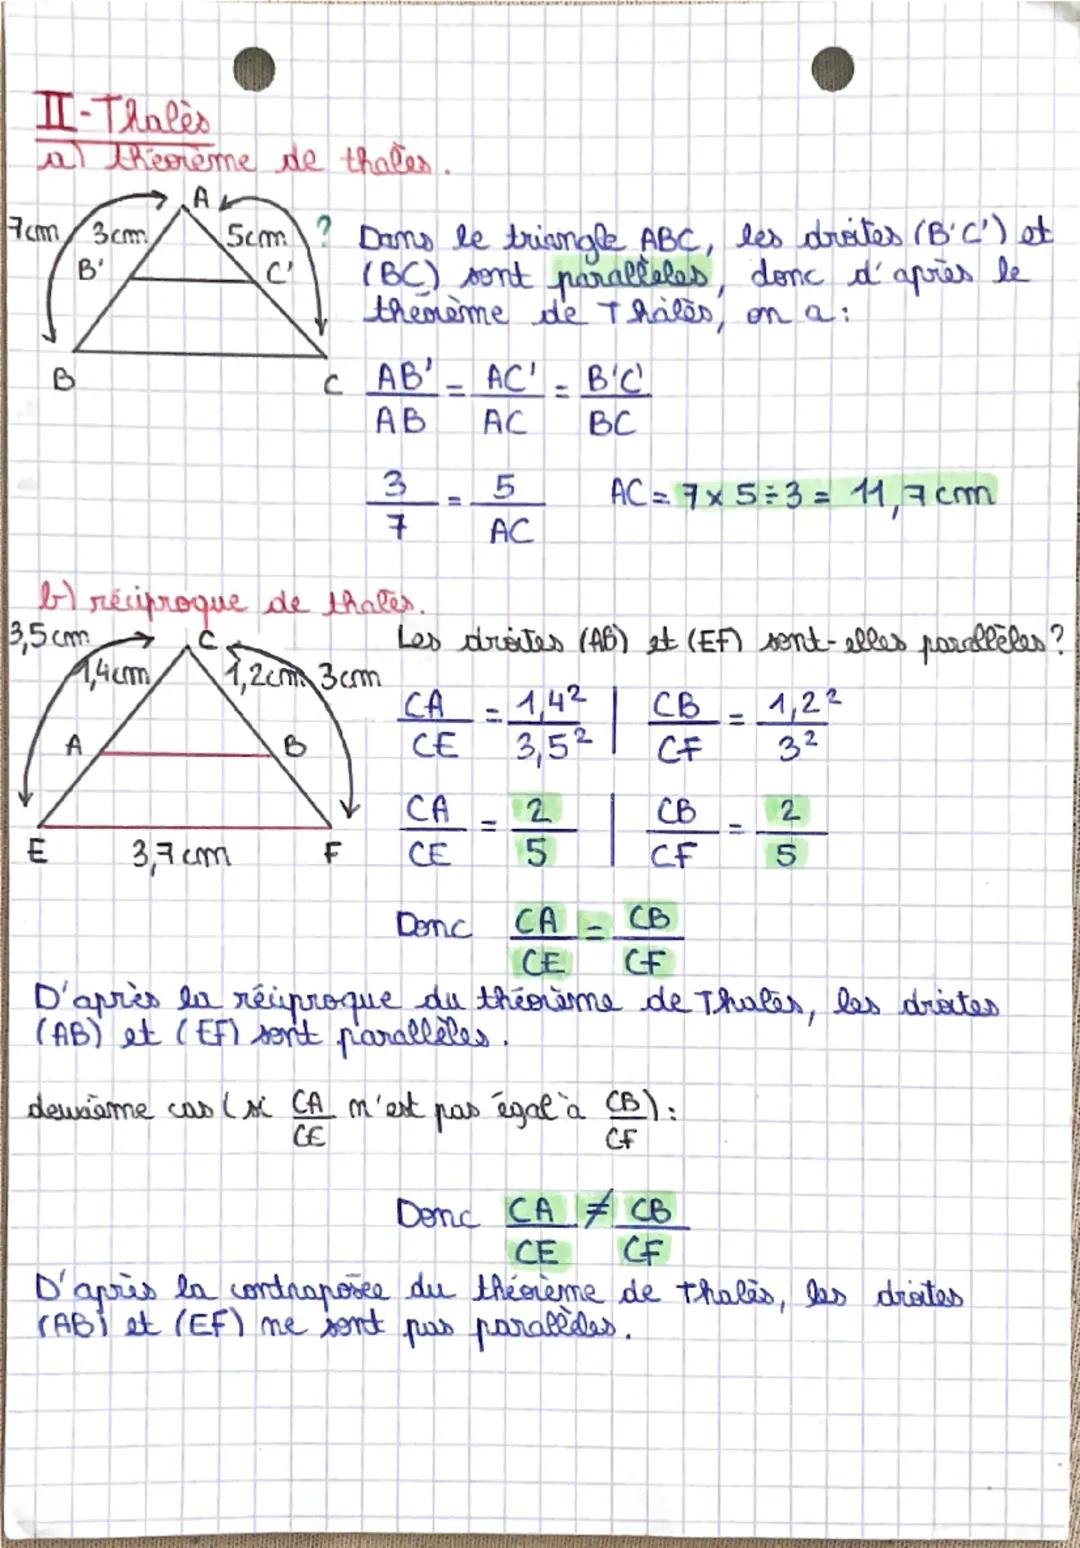 II-Thalès
a) théorème de thalès.
A
7cm 3cm 5cm ?
B' C'
B C
Dans le triangle ABC, les droites (B'C') et
(BC) sont parallèles, donc d'après le
théorème de Thalès, on a :
AB'/AB = AC'/AC = B'C'/BC
3/7 = 5/AC AC = 7 x 5 ÷ 3 = 11,7 cm
b) réciproque de thalès.
3,5cm C
1,4cm 1,2cm 3cm
A B
E 3,7cm F
Les droites (AB) et (EF) sont-elles parallèles ?
CA/CE = 1,4²/3,5² | CB/CF = 1,2²/3²
CA/CE = 2/5 | CB/CF = 2/5
Donc CA/CE = CB/CF
D'après la réciproque du théorème de Thalès, les droites
(AB) et (EF) sont parallèles.
deuxième cas (si CA/CE n'est pas égal à CB/CF) :
Donc CA/CE ≠ CB/CF
D'après la contraposée du théorème de thalès, les droites
(AB) et (EF) ne sont pas parallèles.